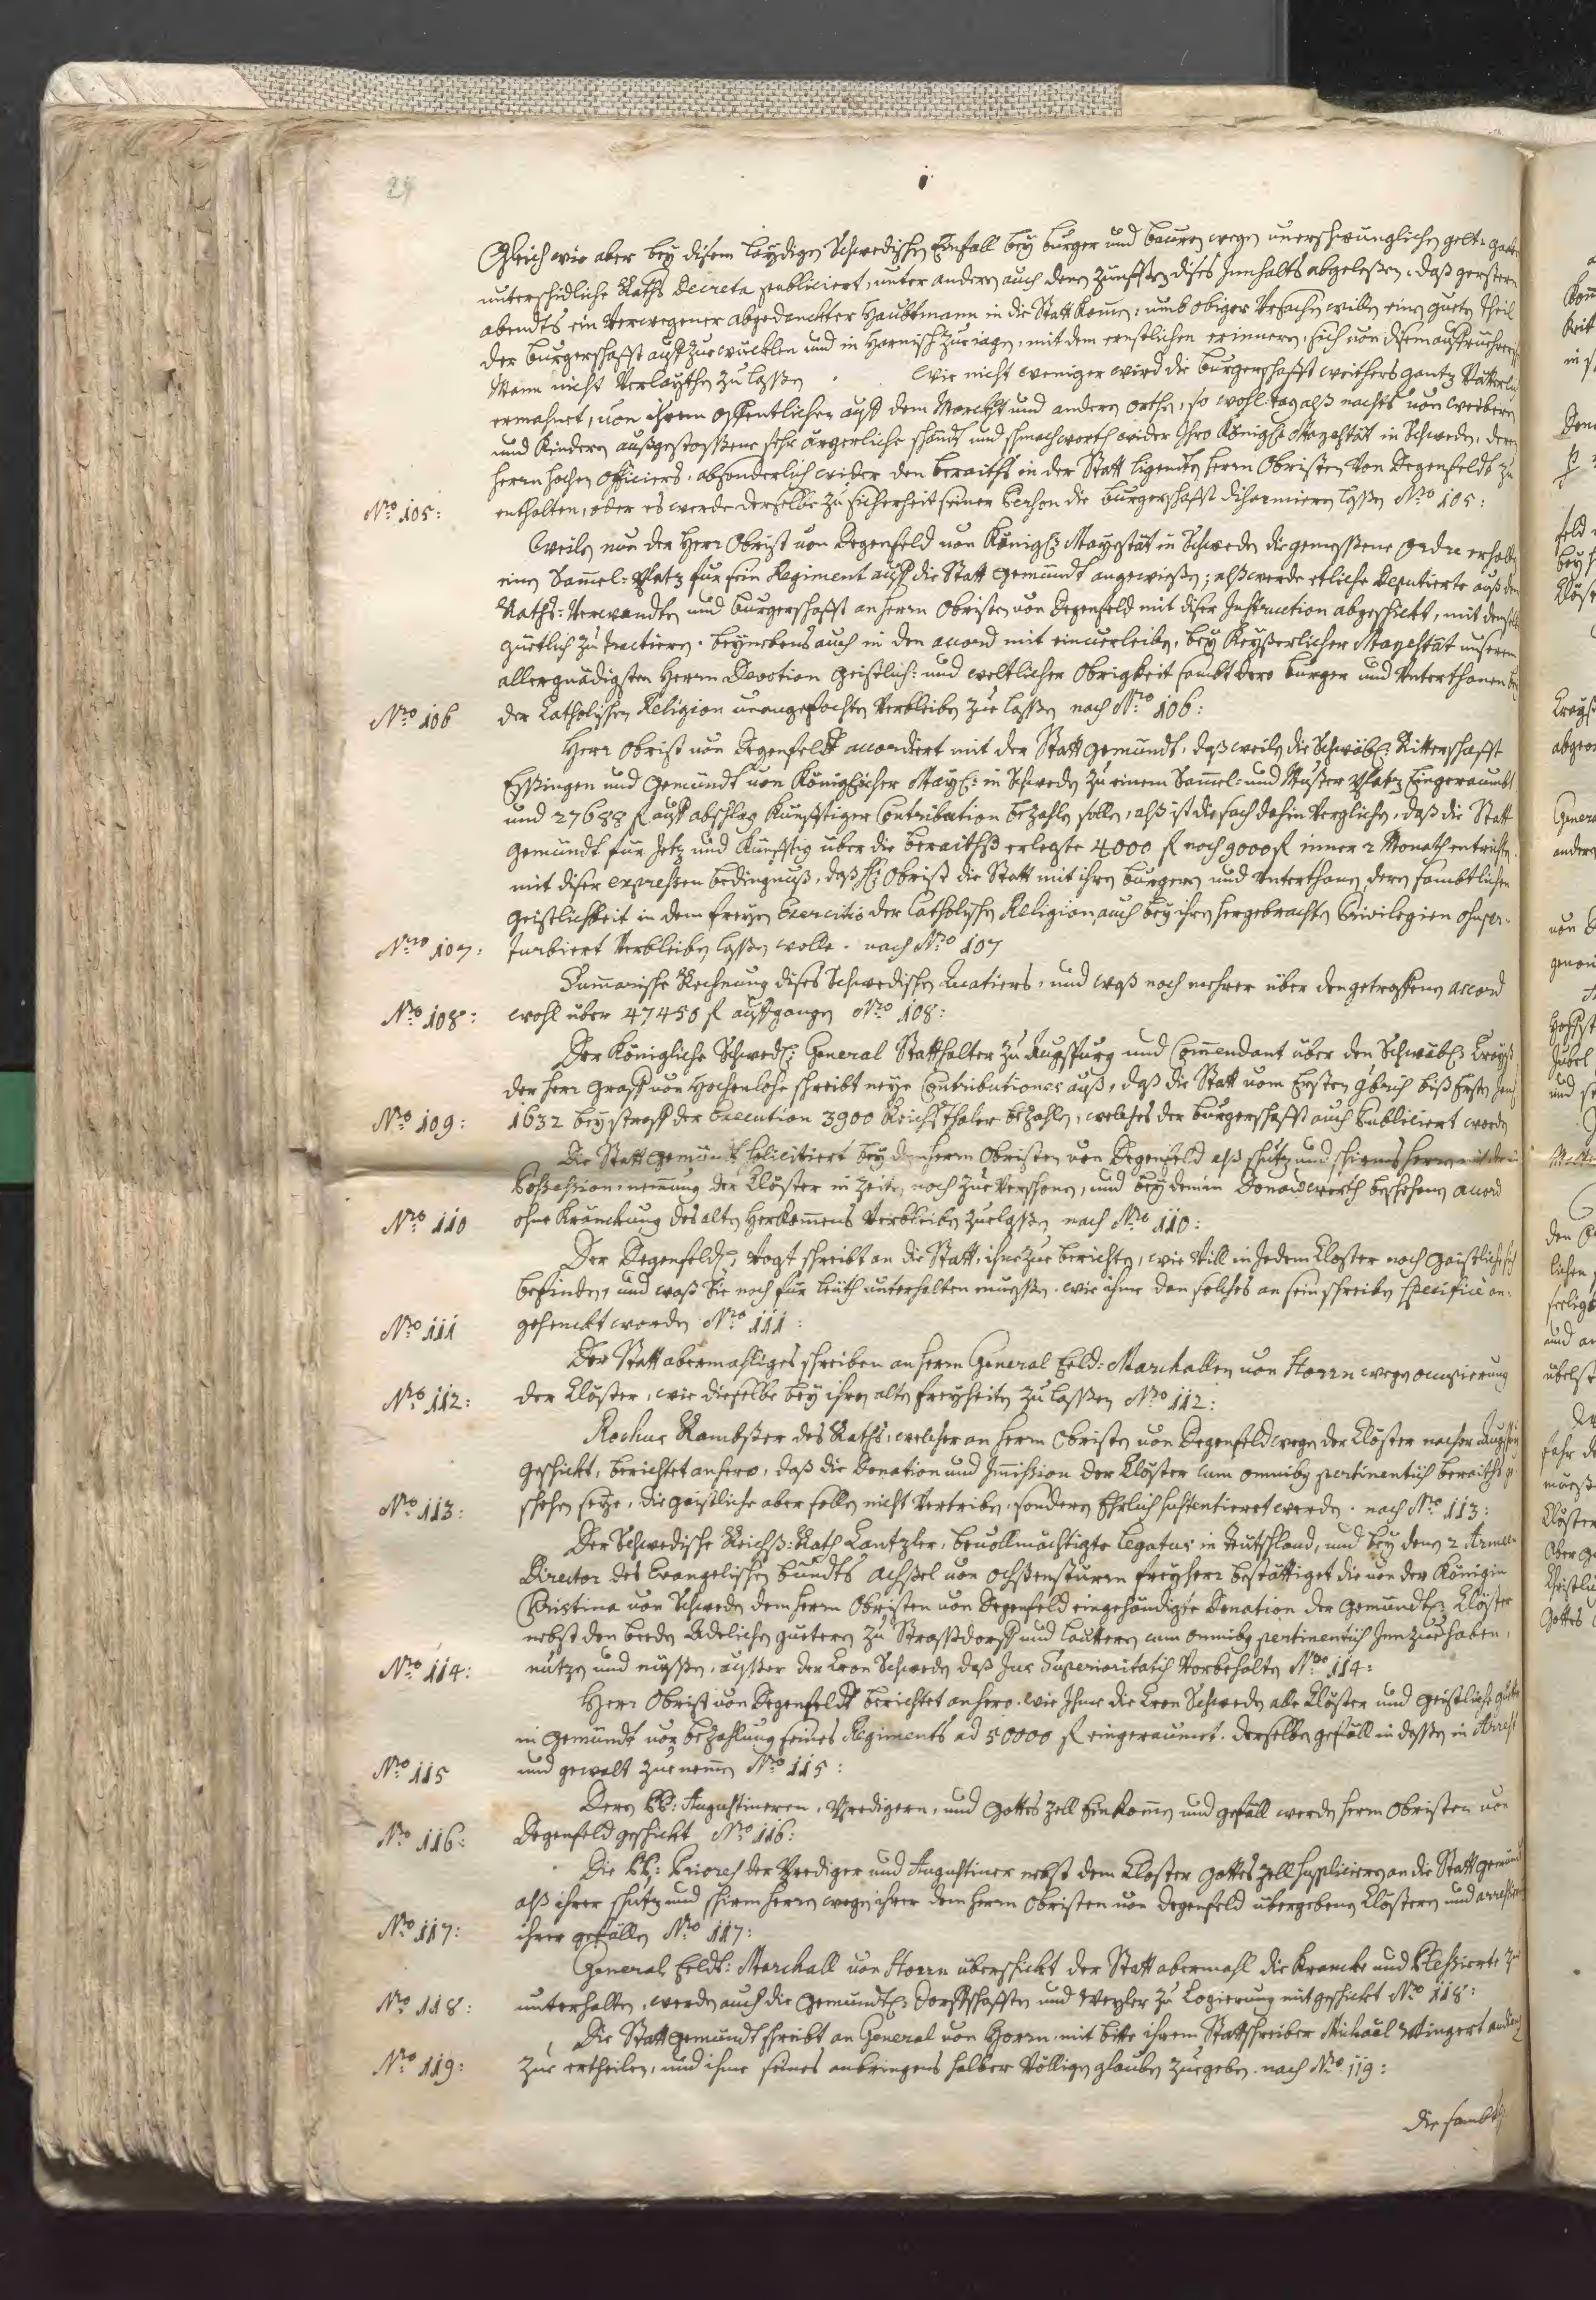 24
Gleich wie aber bey disem laydigen Schwedischen Einfall bey burger und bauren wegen unerschwunglichen gelt
unterschidliche Raths Decreta publiciert, unter anderen auch denen Zunfften dises Innhalts abgelesen, daß gersteren
abendts ein Verwegener abgedanckter Haubtmann in die Statt komen, umb obiger Ursachen willen einen guten theil
der burgerschafft auffzuewicklen und in Harnisch zue iagen, mit dem ernstlichen erinneren, sich von disem
Mann nicht Verlaythen zu lassen. Wie nicht weniger wird die burgerschafft weithers gantz Vätterlich
ermahnet, von ihrem offentlichen auff dem Marckht und anderen orthen, so wohl tag alß nachts von weiberen
und Kinderen außgestossene sehr ärgerliche schandt und schmachworth wider Ihro Königl: Mayestät in Schweden, deren
herrn hochen Officiers, absonderlich wider den beraiths in der Statt ligenden herrn Obristen von Degenfeldt zu
N:ro 105: enthalten, oder es werde derselbe zu sicherheit seiner Person die burgerschafft disarmieren lassen N:ro 105:
Weilen nun der Herr Obrist von Degenfeld von Königl: Mayestät in Schweden die gemessene ordre erhalten
einen Samel-Platz für sein Regiment auff die Statt gemündt angewießen; alß werde etliche Deputierte auß den
Raths-Verwandten und burgerschafft an herrn Obristen von Degenfeld mit diser Instruction abgeschickt, mit
güettlich zu tractieren. beynebens auch in den accord mit einverleiben, bey Keyßerlicher Mayestät unserem
allergnädigsten Herrn Devotion geistlich- und weltlicher Obrigkeit sambt dero burger und Unterthanen bey
N:ro 106 der Catholischen Religion unangefochten Verbleiben zue lassen nach N:ro 106:
Herr Obrist von Degenfeldt accordiert mit der Statt gemündt, daß weilen die Schwäb: Ritterschafft
Essingen und Gemündt von Königlicher May: in Schweden zu einem Samel- und Muster Platz Eingeraumbt
und 27688 fl auff abschlag Kunfftiger Contribution bezahlen sollen, alß ist die sach dahin Verglichen, daß die Statt
gemündt für Jetz und Künfftig über die beraithß erlegte 4000 fl noch 9000 fl inner 2 Monath entrichten
mit diser expressen bedingnuß, daß H: Obrist die Statt mit ihren burgeren und Unterthanen, deren sambtlichen
geistlichkeit in dem freyen Exercitio der Catholischen Religion, auch bey ihren hergebrachten Privilegien ohnper-
N:ro 107: turbiert Verbleiben lassen wolle. nach N:ro 107
Sumarische Rechnung dises Schwedischen Quatiers, und waß noch mehrer über den getroffenen accord
N:ro 108: wohl über 47450 fl auffgangen N:ro 108:
Der Königliche Schwed: General Statthalter zu Augspurg und Comendant über den Schwäb: Creyß
der herr Graff von Hochenlohe schreibt neye Contributiones auß, daß die Statt vom Ersten biß Ersten
N:ro 109: 1632 bey straff der Execution 3900 Reichsthaler bezahlen, welches der burgerschafft auch Publiciert worden
Die Statt gemündt solicitiert bey dem herrn Obristen von Degenfeld alß schutz und schirmsherrn mit der
Possession-nemung der Clöster in Zeiten noch zue Verschonen, und bey dem in Donawerth beschehenen accord
N:ro 110 ohne Kränckung des alten Herkomens Verbleiben zuelassen nach N:ro 110:
Der Degenfeld: Vogt schreibt an die Statt, ihne zue berichten, wie Vill in Jedem Closter noch geistliche sich
befinden, und waß Sie noch für leüth unterhalten müessen. wie ihme dan solches an sein schreiben specificè an-
N:ro 111 gehenckt worden N:ro 111:
Der Statt abermahliges schreiben an herrn General Feld-Marchallen von Horrn wegen occupierung
N:ro 112: der Clöster, wie dieselbe bey ihren alten freyheiten zu lassen N:ro 112:
Rochus Rambßer des Raths, welcher an herrn Obristen von Degenfeld wegen der Clöster nacher Augspurg
geschickt, berichtet anhero, daß die Donation und Immission der Clöster cum omnibus pertinentiis beraiths ge-
N:ro 113: schehen seye, die geistliche aber sollen nicht Vertriben, sonderen Ehrlich sustentieret werden. nach N:ro 113:
Der Schwedische Reichß-Rath Cantzler, bevollmächtigte Legatus in Teutschland, und bey denen 2 Armeen
Director des Evangelischen bundts Achßel von Ochßensturen freyherr bestättiget die von der Königin
Christina von Schweden dem herrn Obristen von Degenfeld eingehändigte Donation der gemündt: Clöster
nebst den beeden Adelichen güeteren zu Strassdorff und Lautteren cum omnibus pertinentiis Innzuehaben,
N:ro 114: nutzen und niessen, ausser der Cron Schweden daß Jus Superioritatis Vorbehalten N:ro 114:
Herr Obrist von Degenfeldt berichtet anhero, wie Ihme die Cron Schweden alle Clöster und geistliche güeter
in gemündt vor bezahlung seines Regiments ad 50000 fl eingeraumet. derselben gefäll indessen in Arrest
N:ro 115 und gewalt zue nemen N:ro 115:
Deren PP: Augustineren, Predigern, und Gottes Zell Einkomen und gefäll werden herrn Obristen von
N:ro 116: Degenfeld geschickt N:ro 116:
Die PP: Priores der Prediger und Augustiner nebst dem Closter Gottes Zell suplicieren an die Statt gemündt
alß ihrer schutz und schirm herrn wegen ihrer dem herrn Obristen von Degenfeld übergebenen Clösteren und
N:ro 117: ihrer gefällen N:ro 117:
General Feldt-Marchall von Horrn überschickt der Statt abermahl die Krancke und Plessierte zu
N:ro 118: unterhalten, werden auch die Gemündt: dorffschafften und Weyler zu Logierung mit geschickt N:ro 118:
Die Statt gemündt schreibt an General von Horrn, mit bitte ihrem Stattschreiber Michaël Wingert audienz
N:ro 119: zue ertheilen, und ihme seines anbringens halber Völligen glauben zuegeben. nach N:ro 119:
Die sambt